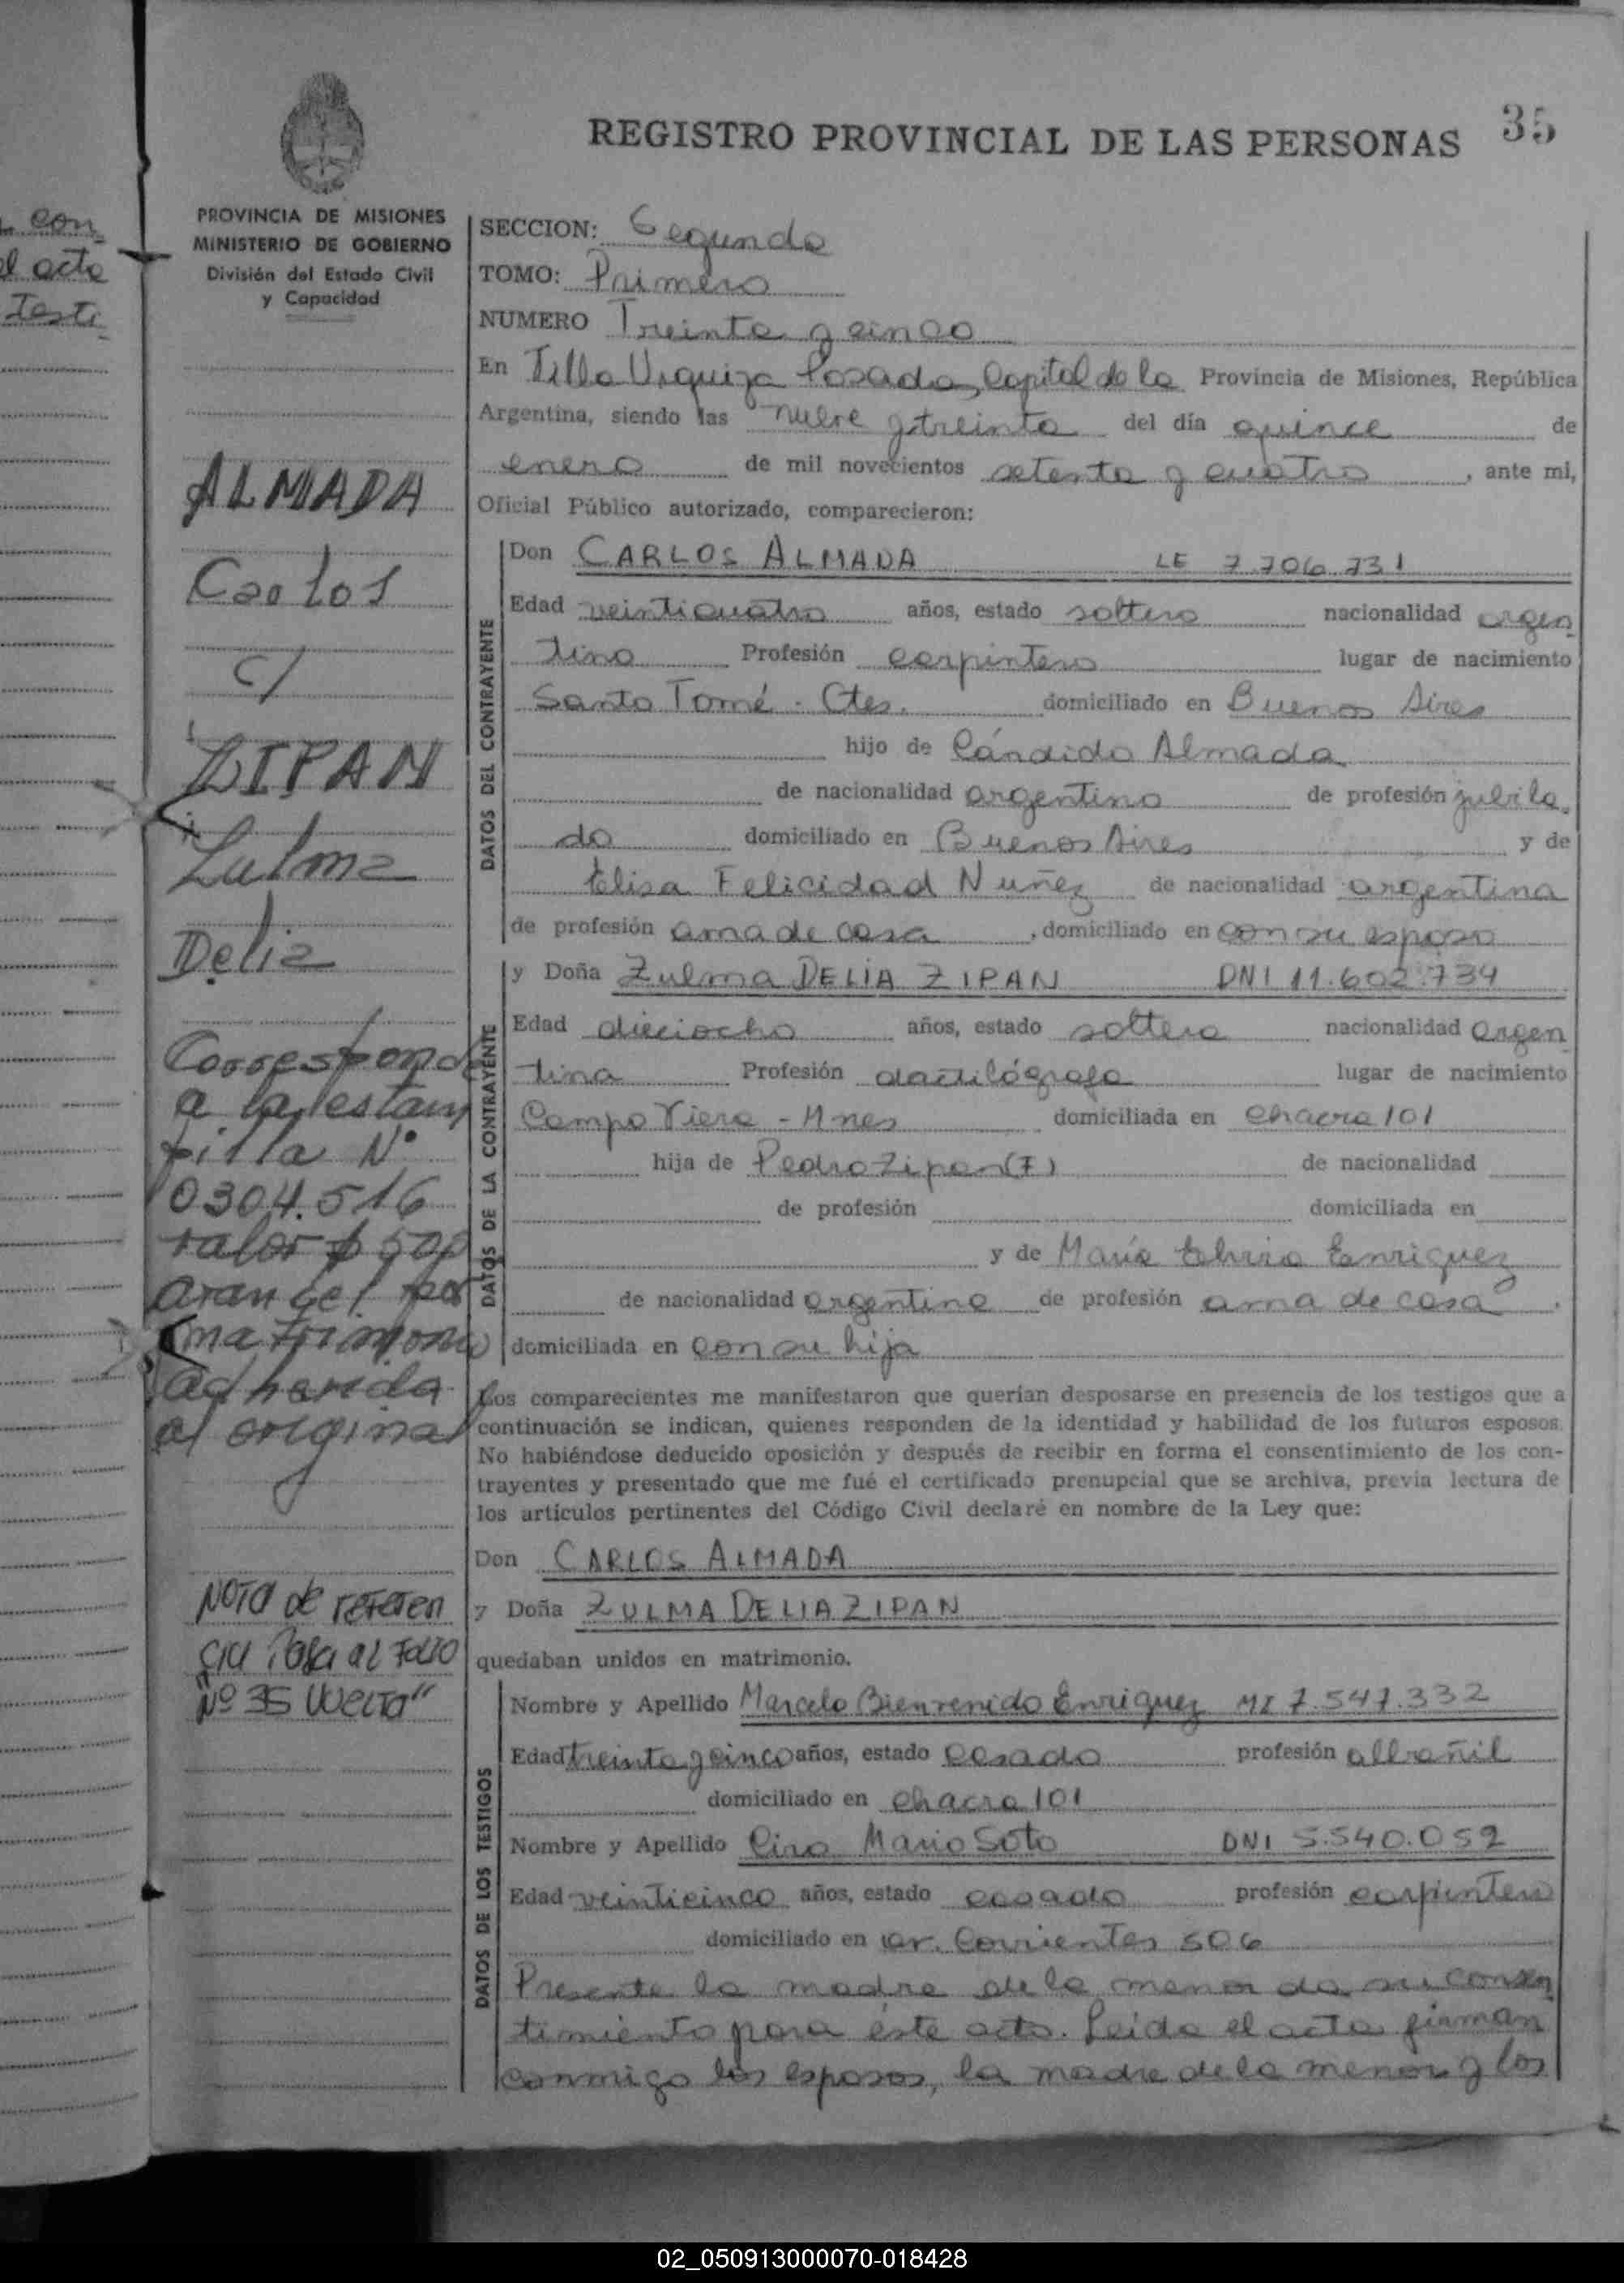 con
l acto
Testi
35
REGISTRO PROVINCIAL DE LAS PERSONAS
PROVINCIA DE MISIONES
MINISTERIO DE GOBIERNO
División del Estado Civil
y Capacidad
ALMADA
Carlos
c/
ZIPAN
Zulma
Delia
Corresponde
a la estam
pilla Nº
0304.516
valor $ 500
arancel por
matrimonio
adherida
al original
NOTA de referen
cia Pasa al Folio
Nº 35 Vuelta"
SECCION: Segunda
TOMO: Primero
NUMERO Treinta y cinco
En Villa Urquiza Posadas, Capital de la Provincia de Misiones, República
Argentina, siendo las nueve y treinta del día quince de
enero de mil novecientos setenta y cuatro, ante mi,
Oficial Público autorizado, comparecieron:
DATOS DEL CONTRAYENTE
Don CARLOS ALMADA LE 7.706.731
Edad veinticuatro años, estado soltero nacionalidad argen
tino Profesión carpintero lugar de nacimiento
Santo Tomé - Ctes. domiciliado en Buenos Aires
hijo de Cándido Almada
de nacionalidad argentino de profesión jubila
do domiciliado en Buenos Aires y de
Elisa Felicidad Nuñez de nacionalidad argentina
de profesión ama de casa, domiciliado en con su esposo
DATOS DE LA CONTRAYENTE
y Doña Zulma DELIA ZIPAN DNI 11.602.734
Edad dieciocho años, estado soltera nacionalidad argen
tina Profesión dactilógrafa lugar de nacimiento
Campo Viera - Mnes domiciliada en chacra 101
hija de Pedro Zipan (F) de nacionalidad
de profesión domiciliada en
y de María Elvira Enriquez
de nacionalidad argentina de profesión ama de casa,
domiciliada en con su hija
Los comparecientes me manifestaron que querían desposarse en presencia de los testigos que a
continuación se indican, quienes responden de la identidad y habilidad de los futuros esposos.
No habiéndose deducido oposición y después de recibir en forma el consentimiento de los con-
trayentes y presentado que me fué el certificado prenupcial que se archiva, previa lectura de
los artículos pertinentes del Código Civil declaré en nombre de la Ley que:
Don CARLOS ALMADA
y Doña ZULMA DELIA ZIPAN
quedaban unidos en matrimonio.
DATOS DE LOS TESTIGOS
Nombre y Apellido Marcelo Bienvenido Enriquez MI 7.547.332
Edad treinta y cinco años, estado casado profesión albañil
domiciliado en chacra 101
Nombre y Apellido Ciro Mario Soto DNI 5.540.052
Edad veinticinco años, estado casado profesión carpintero
domiciliado en av. Corrientes 506
Presente la madre de la menor da su consen
timiento para éste acto. Leida el acta firman
conmigo los esposos, la madre de la menor y los
02_050913000070-018428